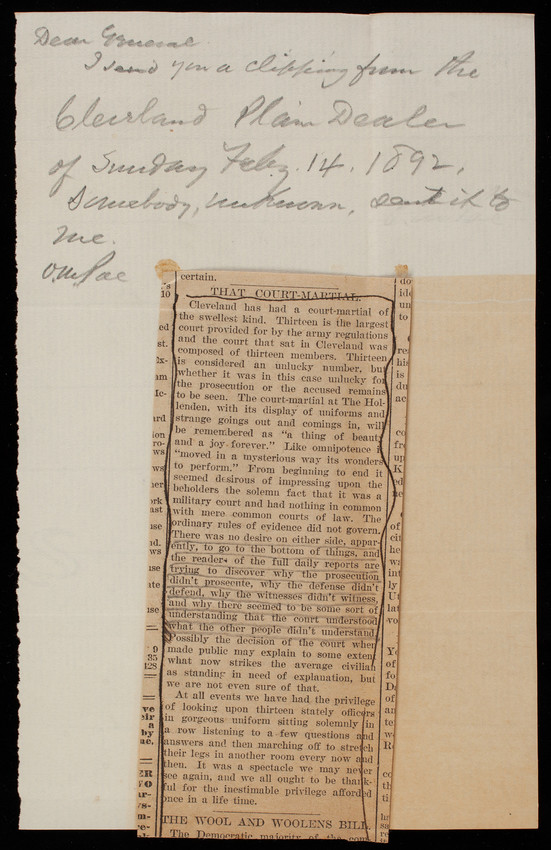 Dear General
I send you a clipping from the
Cleveland Plain Dealer
of Sunday Feby. 14. 1892.
Somebody, unknown, sent it to
me.
O.M. Poe
certain.
THAT COURT-MARTIAL.
Cleveland has had a court-martial of
the swellest kind. Thirteen is the largest
court provided for by the army regulations
and the court that sat in Cleveland was
composed of thirteen members. Thirteen
is considered an unlucky number, but
whether it was in this case unlucky for
the prosecution or the accused remains
to be seen. The court-martial at The Hol-
lenden, with its display of uniforms and
strange goings out and comings in, will
be remembered as "a thing of beauty
and a joy forever." Like omnipotence i
"moved in a mysterious way its wonders
to perform." From beginning to end it
seemed desirous of impressing upon the
beholders the solemn fact that it was a
military court and had nothing in common
with mere common courts of law. The
ordinary rules of evidence did not govern.
There was no desire on either side, appar-
ently, to go to the bottom of things, and
the readers of the full daily reports are
trying to discover why the prosecution
didn't prosecute, why the defense didn't
defend, why the witnesses didn't witness,
and why there seemed to be some sort of
understanding that the court understood
what the other people didn't understand.
Possibly the decision of the court when
made public may explain to some extent
what now strikes the average civilian
as standing in need of explanation, but
we are not even sure of that.
At all events we have had the privilege
of looking upon thirteen stately officers
in gorgeous uniform sitting solemnly in
a row listening to a few questions and
answers and then marching off to stretch
their legs in another room every now and
then. It was a spectacle we may never
see again, and we all ought to be thank-
ful for the inestimable privilege afforded
once in a life time.
THE WOOL AND WOOLENS BILL.
The Democratic majority of the com